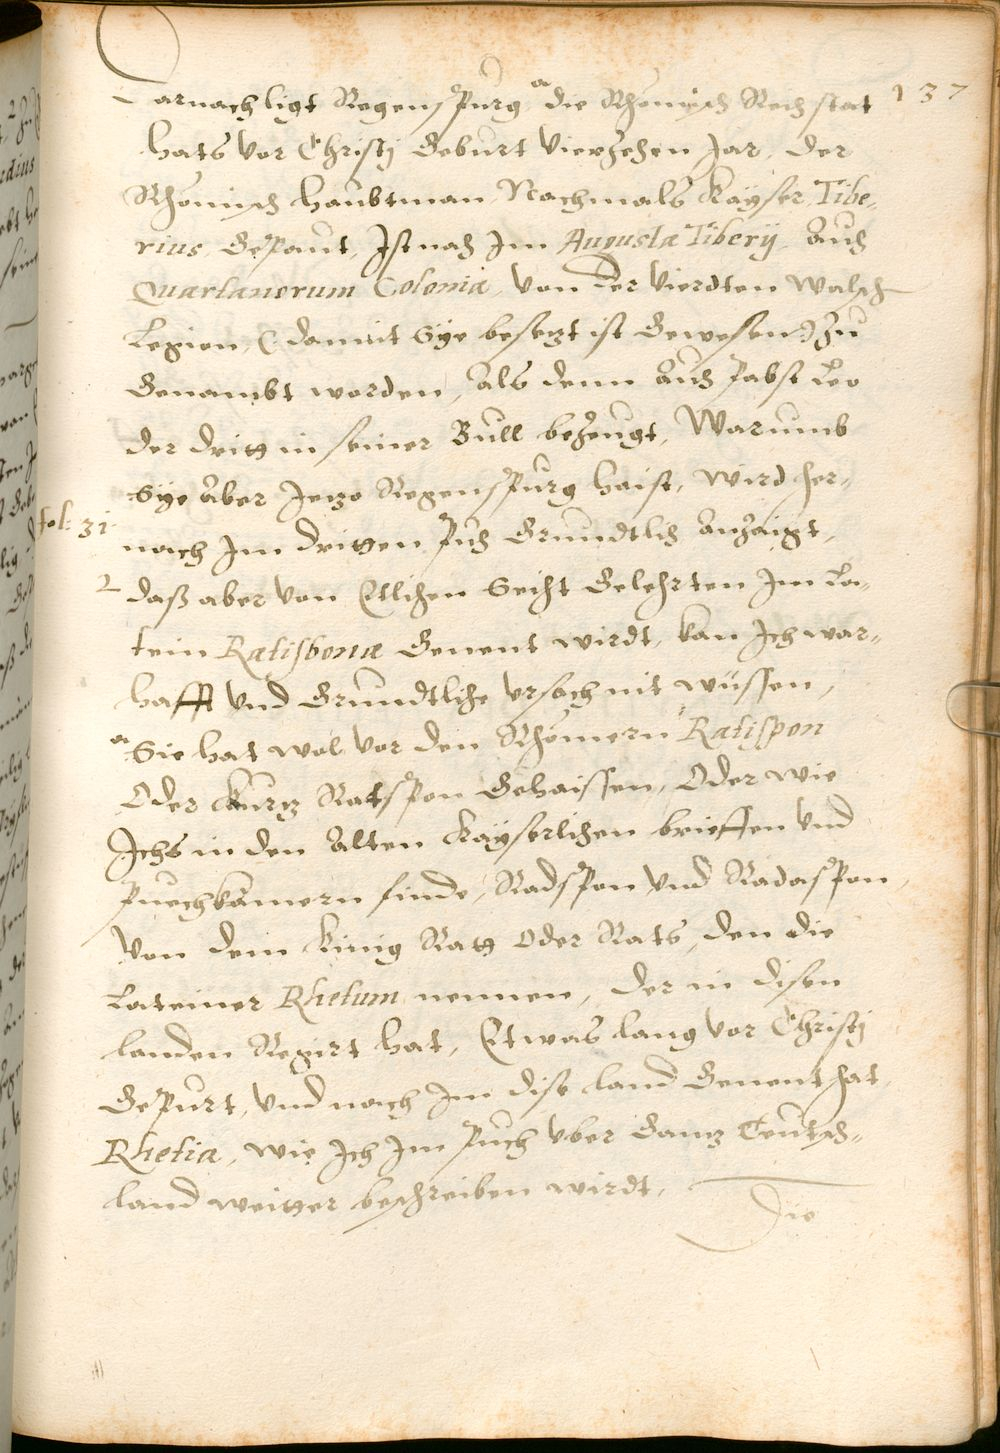 137
arnach ligt Regenspurg die Rhömisch Reichstat
hats vor Christj Geburt vierzehen Jar, der
Rhömisch haubtman Nachmals Kayser Tibe-
rius, Gepaut, Ist nach Im Augusta Tiberij, auch
Quartanorum Colonia, von der vierdten Walsch
Legion, (damit Sye besezt ist Gewesen) zu
Genambt worden, als denn auch Pabst Leo
der dritt in seiner Bull bezeugt, Warumb
Sye aber Jezo Regenspurg haist, wird her-
fol: 31
nach Im dritten Puch Grundtlich anzaigt,
2 daß aber von Etlichen Seicht Gelehrten Im La-
tein Ratisbona Genent wirdt, kan Ich war-
hafft vnd Grundtliche vrsach nit wüssen,
a Sie hat wol vor den Rhömern Ratispon
Oder Kurz Ratspon Gehaissen, Oder wie
Ichs in den alten Kayserlichen brieffen vnd
Puechkamern finde, Radspon vnd Radaspon,
von dem Künig Ratt Oder Rats, den die
Lateiner Rhetum nennen, der in disen
landen Regirt hat, Etwas lang vor Christj
Gepurt, vnd nach Im dise land Genent hat
Rhetia, wie Ich Im Puch vber Ganz Teutsch-
land weitter beschreiben wirdt,
Die